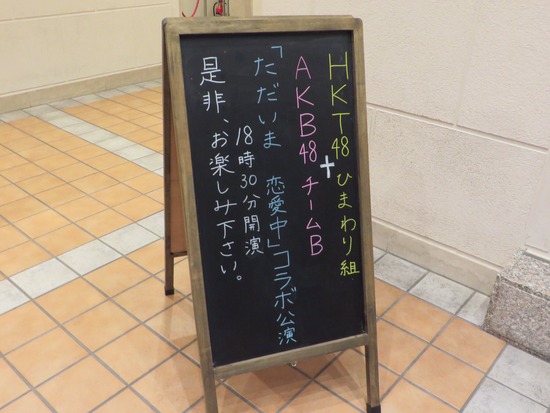 HKT48 ひまわり組
+
AKB48 チームB
「ただいま 恋愛中」コラボ公演
18時30分開演
是非、お楽しみ下さい。